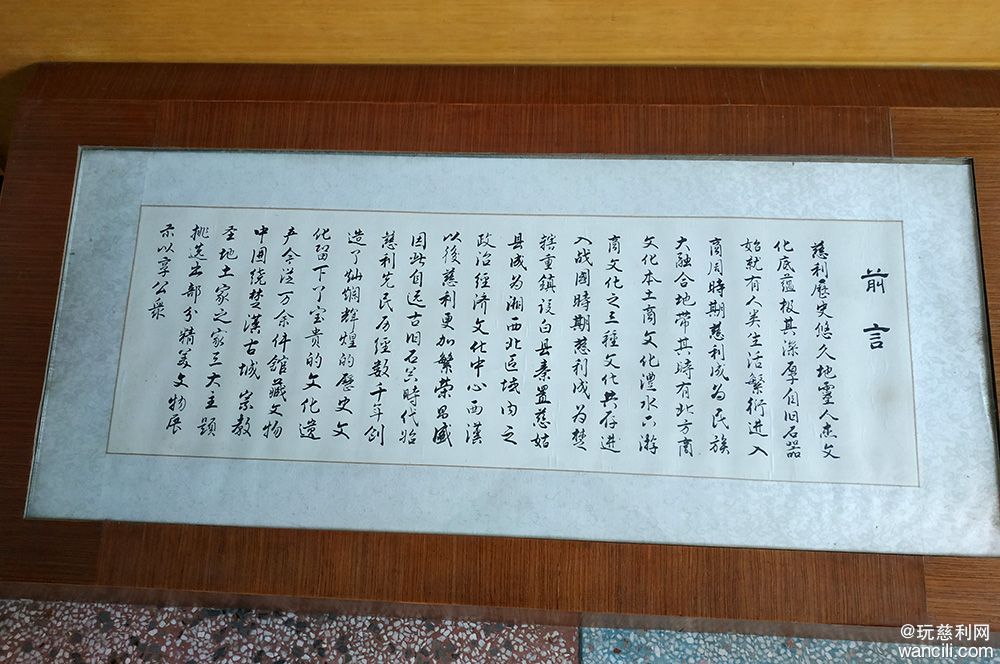 前言
慈利歷史悠久地靈人杰文
化底蕴极其深厚自旧石器
始就有人类生活繁衍进入
商周時期慈利成为民族
大融合地带其時有北方商
文化本土商文化澧水下游
商文化之三种文化共存进
入战國時期慈利成为楚
辖重镇设白县秦置慈姑
县成为湘西北区域内之
政治经济文化中心西漢
以後慈利更加繁荣昌盛
因此自远古旧石器時代始
慈利先民历经数千年创
造了灿烂辉煌的歷史文
化留下了宝贵的文化遗
产今從万余件館藏文物
中围绕楚漢古城宗教
圣地土家之家三大主题
挑选出部分精美文物展
示以享公衆
@玩慈利网
wancili.com